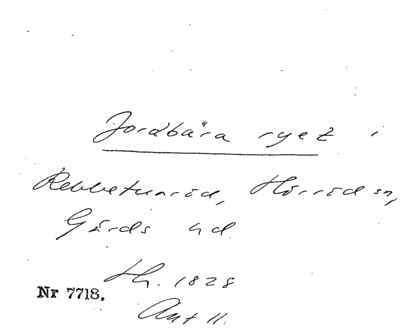 Jordbära ryet i
Rebbetuaröd, Hörröd sn,
Gärds hd.
Hh. 1828
Nr 7718.
Ant 11.